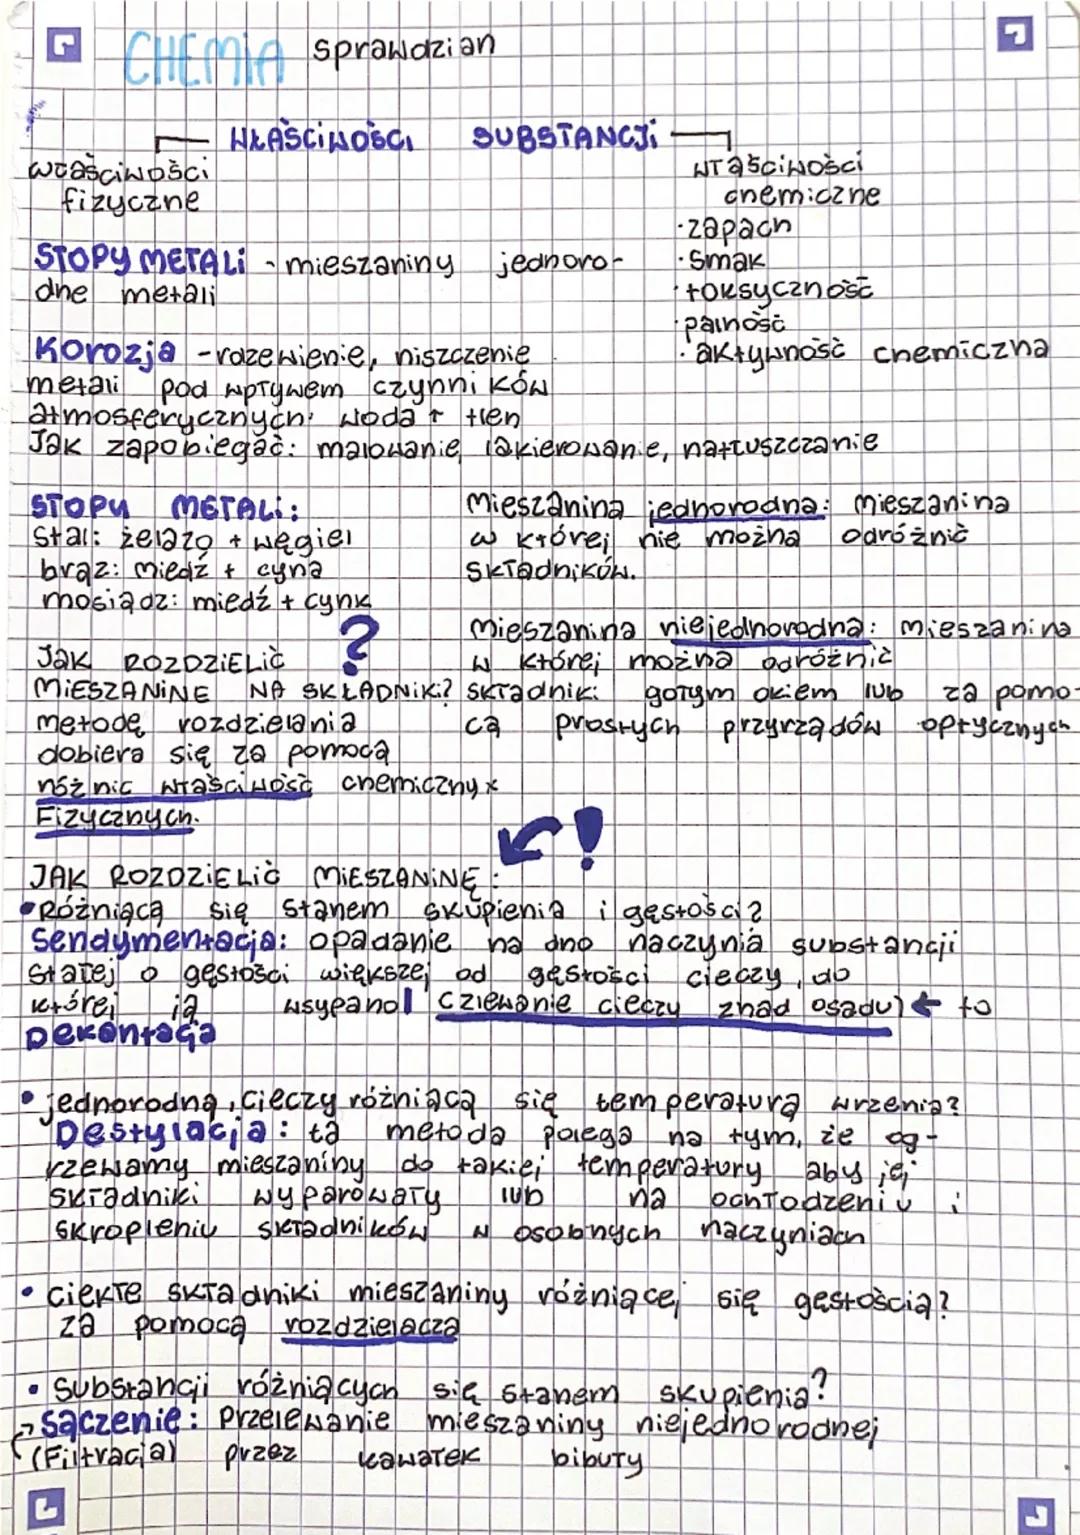 CHEMIA sprawdzian
WŁAŚCIWOŚCI SUBSTANCJI
właściwości
fizyczne
właściwości
chemiczne
·zapach
·smak
·toksyczność
·palność
·aktywność chemiczna
STOPY METALI - mieszaniny jednoro-
dne metali
Korozja - rdzewienie, niszczenie
metali pod wpływem czynników
atmosferycznych: woda + tlen
Jak zapobiegać: malowanie, lakierowanie, natłuszczanie
STOPY METALI:
Stal: żelazo + węgiel
brąz: miedź + cyna
mosiądz: miedź + cynk
Mieszanina jednorodna: Mieszanina
w której nie można odróżnić
składników.
Mieszanina niejednorodna: mieszanina
w której można odróżnić
składniki gołym okiem lub za pomo-
cą prostych przyrządów optycznych
JAK ROZDZIELIĆ ?
MIESZANINE NA SKŁADNIKI?
metodę rozdzielania
dobiera się za pomocą
różnic właściwość chemiczny x
Fizycznych.
JAK ROZDZIELIĆ MIESZANINĘ: !
•Różniącą się stanem skupienia i gęstości?
Sendymentacja: opadanie na dno naczynia substancji
stałej o gęstości większej od gęstości cieczy, do
której ją wsypano| cziewanie cieczy znad osadu) ← to
Dekantacja
• jednorodną, cieczy różniącą się temperaturą wrzenia?
Destylacja: ta metoda polega na tym, że og-
rzewamy mieszaniny do takiej temperatury aby jej
składniki wyparowały lub na ochłodzeniu i
skropleniu składników w osobnych naczyniach
• Ciekłe składniki mieszaniny różniącej się gęstością?
za pomocą rozdzielacza
• substancji różniących się stanem skupienia?
Sączenie: Przelewanie mieszaniny niejednorodnej
(Filtracja) przez kawałek bibuły